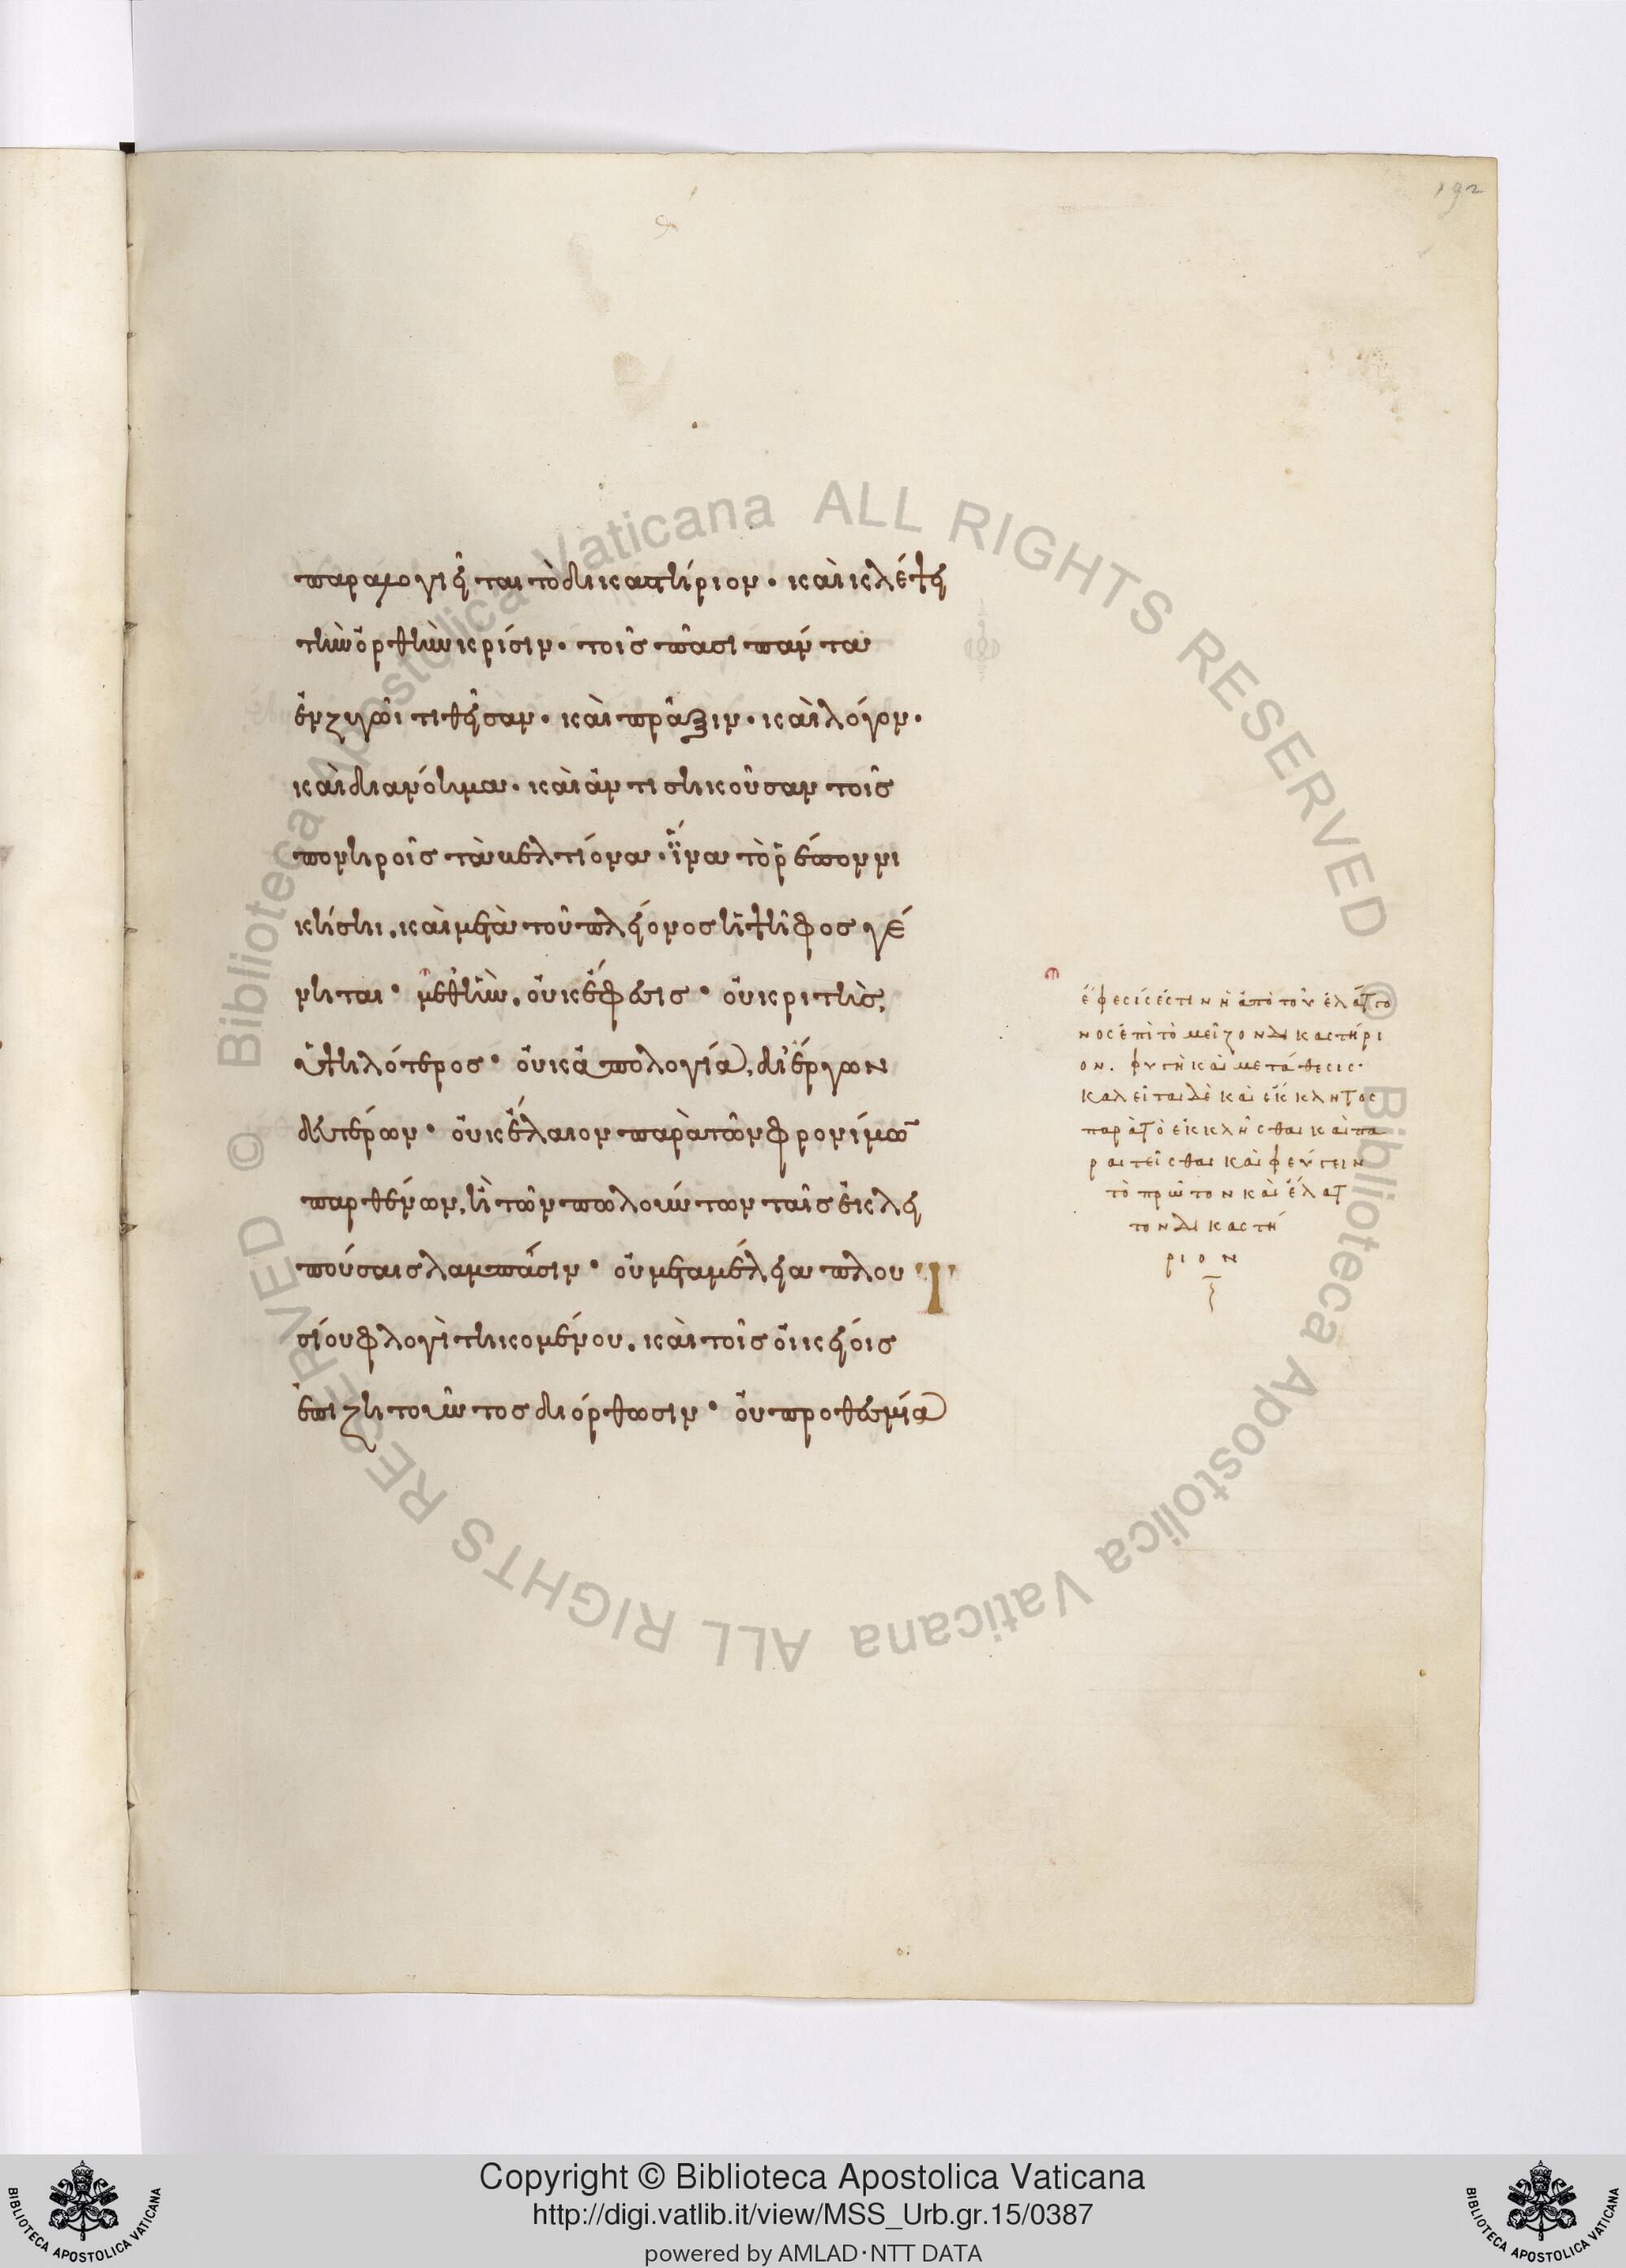 192
παραλογιεῖται τὸ δικαστήριον· καὶ κλέψει
τὴν ὀρθὴν κρίσιν· τοῖς πᾶσι πάντα
ἐν ζυγῶι τιθεῖσαν· καὶ πρᾶξιν· καὶ λόγον·
καὶ διανόημα· καὶ ἀντισηκοῦσαν τοῖς
πονηροῖς τὰ βελτίονα· ἵνα τὸ ῥέπον νι
κήση, καὶ μετὰ τοῦ πλείονος ἡ ψῆφος γέ
νηται· μεθ' ἣν, οὐκ ἔφεσις· οὐ κριτὴς,
ὑψηλότερος· οὐκ ἀπολογία, δι' ἔργων
δευτέρων· οὐκ ἔλαιον παρὰ τῶν φρονίμων
παρθένων, ἢ τῶν πωλούντων ταῖς ἐκλει
πούσαις λαμπάσιν· οὐ μεταμέλεια πλου
σίου φλογὶ τηκομένου, καὶ τοῖς οἰκείοις
ἐπιζητοῦντος διόρθωσιν· οὐ προθεσμία
ἔφεσίς ἐστιν ἡ ἀπὸ τοῦ ἐλάττο
νος ἐπὶ τὸ μεῖζον δικαστήρι
ον. φυγὴ καὶ μετάθεσις·
καλεῖται δὲ καὶ ἔκκλητος
παρὰ τὸ ἐκκλῆσθαι καὶ πα
ραιτεῖσθαι καὶ φεύγειν
τὸ πρῶτον καὶ ἔλατ
τον δικαστή
ριον
© Biblioteca Apostolica Vaticana ALL RIGHTS RESERVED
© Biblioteca Apostolica Vaticana ALL RIGHTS RESERVED
Copyright © Biblioteca Apostolica Vaticana
http://digi.vatlib.it/view/MSS_Urb.gr.15/0387
powered by AMLAD·NTT DATA
BIBLIOTECA APOSTOLICA VATICANA
BIBLIOTECA APOSTOLICA VATICANA